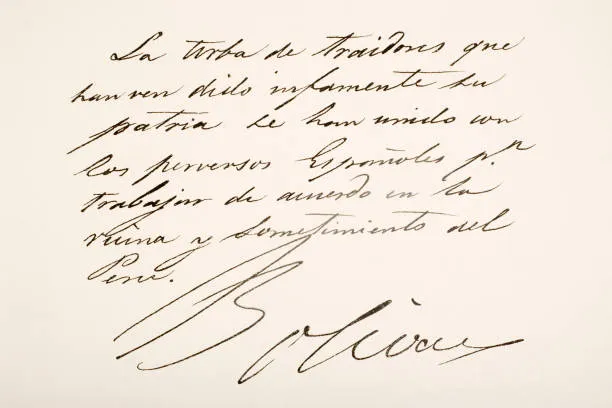 La turba de traidores que
han ven dido infamente su
patria se han unido con
los perversos Españoles pn
trabajar de acuerdo en la
ruina y sometimiento del
Peru.
Bolivar